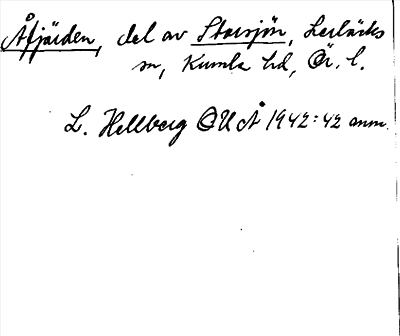 Åfjärden, del av Storsjön, Lerbäcks
sn, Kumla hd, Ör. l.
L. Hellberg OUÅ 1942:42 anm.